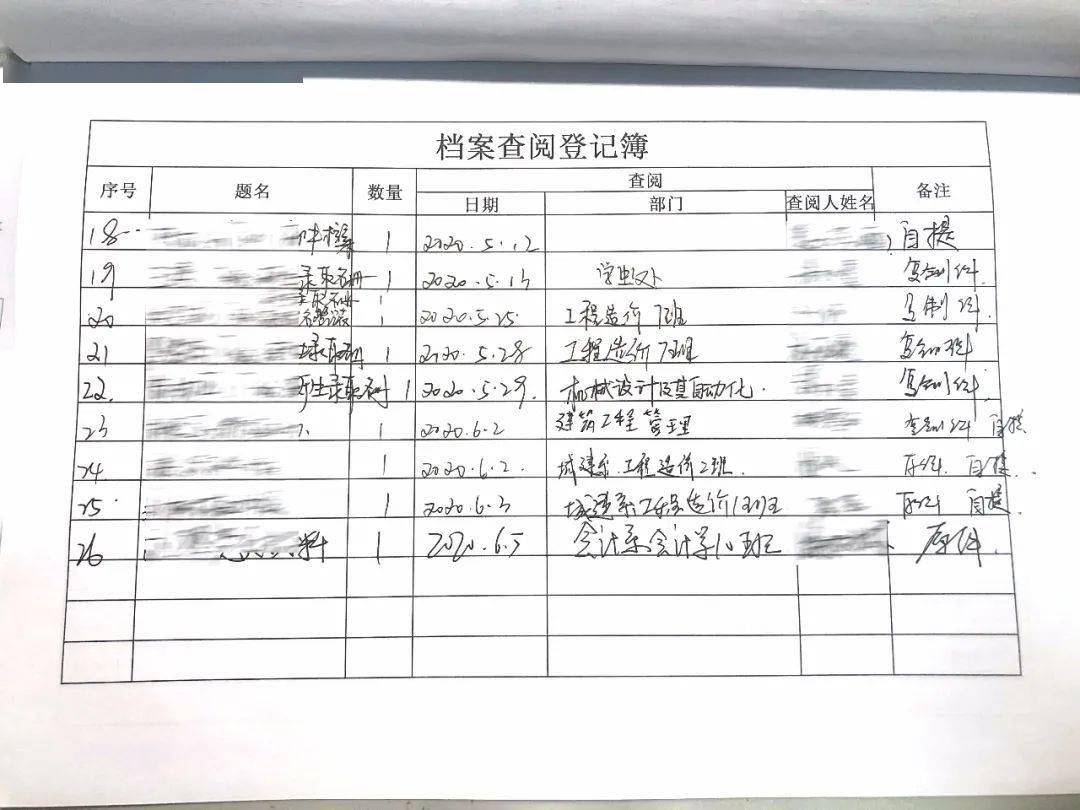 档案查阅登记簿
序号 题名 数量 查阅 备注
日期 部门 查阅人姓名
18 1 2020.5.12 自提
19 录取名册 1 2020.5.13 学生处 复制件
录取名册 1
20 1 2020.5.25 工程造价7班 复制件
21 录取册 1 2020.5.28 工程造价7班 复制件
22 生录取名册 1 2020.5.29 机械设计及其自动化 复制件
23 1 2020.6.2 建筑工程管理 复制件 自提
24 1 2020.6.2 城建系工程造价2班 原件 自提
25 1 2020.6.3 城建系工程造价 班 原件 自提
26 料 1 2020.6.5 会计系会计学10班 原件